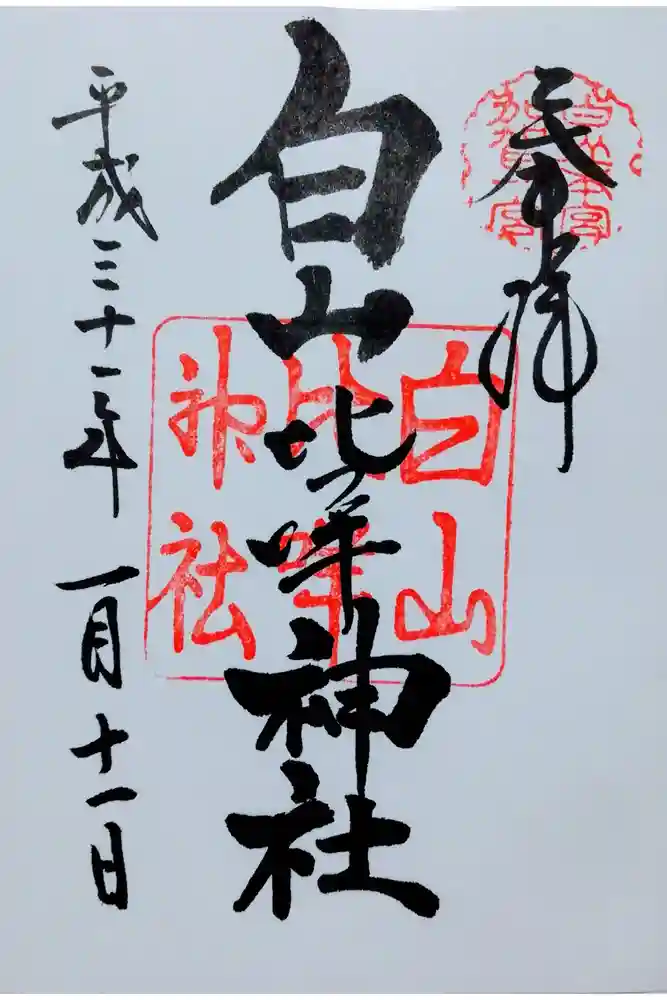 奉拝
白山比咩神社
平成三十一年一月十一日
白山
比咩
神社